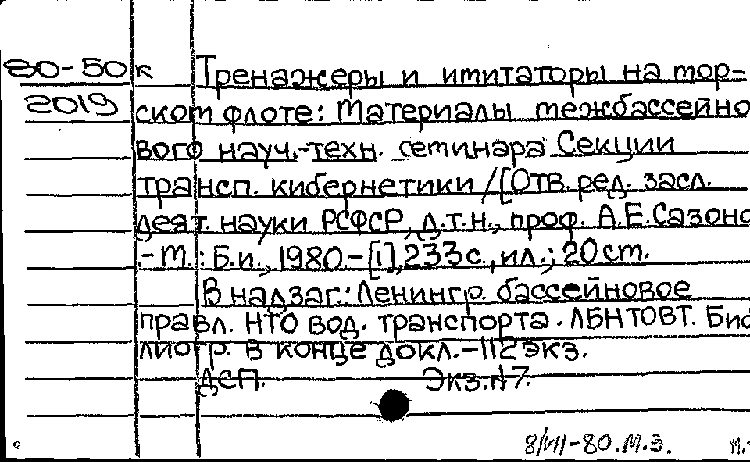 80-50к Тренажеры и имитаторы на мор-
2019 ском флоте: Материалы межбассейно
вого науч.-техн. семинара Секции
трансп. кибернетики /[Отв. ред. засл.
деят. науки РСФСР, д.т.н., проф. А.Е.Сазоно
.-М.: Б.и., 1980.-[1],233с., ил.; 20см.
В надзаг.: Ленингр. бассейновое
правл. НТО вод. транспорта. ЛБНТОВТ. Биб
лиогр. в конце докл.-112экз.
ДСП. Экз.№7.